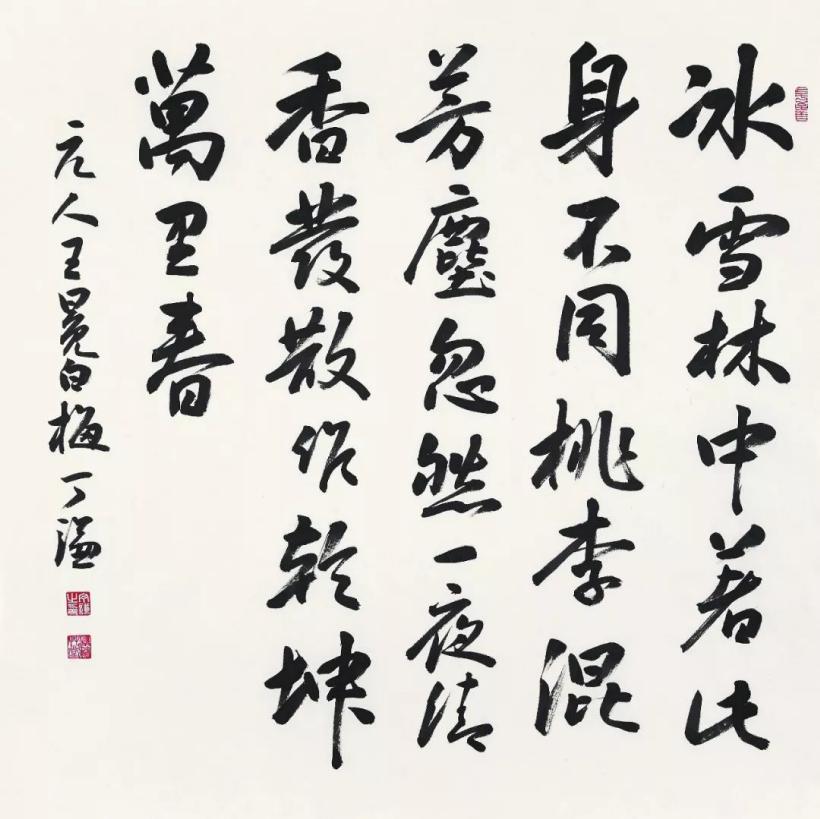 冰雪林中著此
身不同桃李混
芳塵忽然一夜清
香發散作乾坤
萬里春
元人王冕白梅丁謐